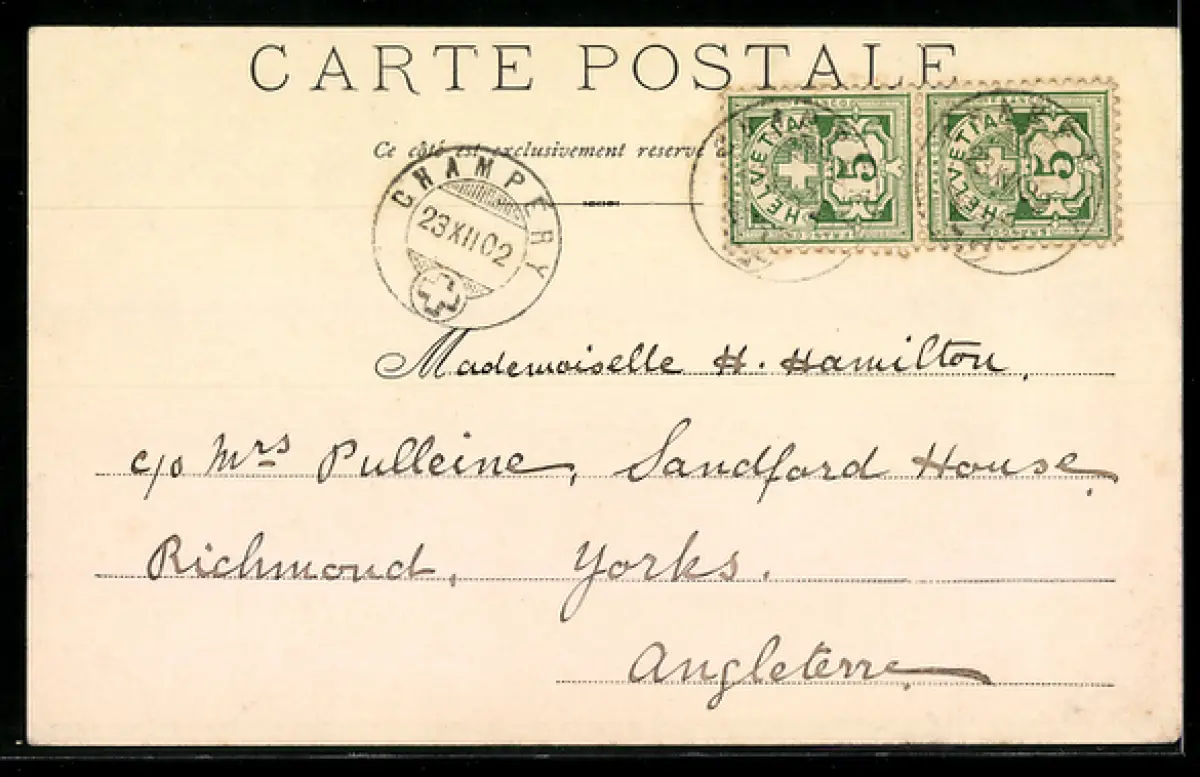 CARTE POSTALE
Ce côté est exclusivement reservé
HELVETIA 5
HELVETIA 5
FRANCO
FRANCO
CHAMPERY
23 XII 02
Mademoiselle H. Hamilton.
c/o Mrs Pulleine, Sandford House.
Richmond, Yorks.
Angleterre